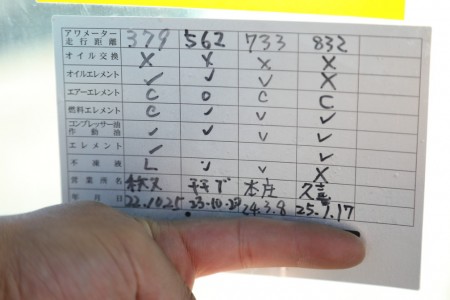 アワメーター
走行距離 379 562 733 832
オイル交換 X X X X
オイルエレメント ✓ ✓ ✓ X
エアーエレメント C O C C
燃料エレメント C ✓ ✓ ✓
コンプレッサー油
作動油 ✓ ✓ ✓ ✓
エレメント ✓ ✓
不凍液 L ✓ ✓ X
営業所名 本庄
年月日 22.10.25 23.10.28 24.3.8 25.9.17